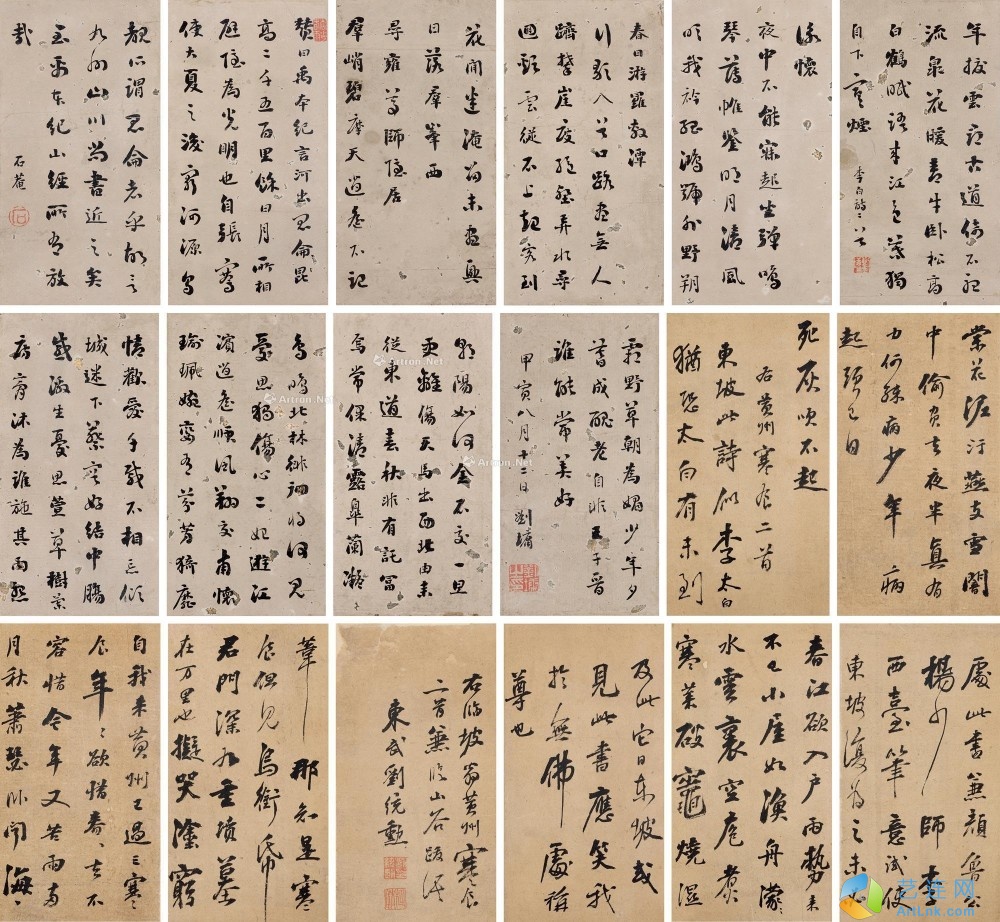 年撥雲尋古道倚石聽
流泉花暖青牛卧松高
白鶴眠語來江色暮獨
自下寒煙
李白詩二首
詠懷
夜中不能寐起坐彈鳴
琴薄帷鑒明月清風
吹我衿孤鴻號外野朔
春日游羅敷潭
行歌入谷口路盡無人
躋攀崖度絕壑弄水尋
迴谿雲從石上起客到
花間坐淹留未盡興
日落羣峯西
尋雍尊師隱居
羣峭碧摩天逍遙不記
贊曰禹本紀言河出昆侖昆
高二千五百里餘日月所相
避隱為光明也自張騫
使大夏之後窮河源烏
覩所謂昆侖者乎故言
九州山川尚書近之矣
至禹本紀山經所有放
哉
石菴
棠花泥汙燕支雪闇
中偷負去夜半真有
力何殊病少年病
起頭已白
死灰吹不起
右黄州寒食二首
東坡此詩似李太白
猶恐太白有未到
霜野草朝為媚少年夕
暮成醜老自非王子晉
誰能常美好
甲寅八月十日劉墉
朝陽如何金石交一旦
更離傷天馬出西北由来
從東道春秋非有託富
焉常保清露皋蘭凝
鳥鳴北林徘徊將何見
憂思獨傷心二妃遊江
濱逍遙順風翔交甫懷
珮婉孌有芬芳猗靡
情歡愛千載不相忘傾
城迷下蔡容好結中腸
感激生憂思萱草樹蘭
房膏沐為誰施其雨怨
處此書兼顏魯公
楊少師李
西臺筆意試使
東坡復為之未必
春江欲入户雨勢来
不已小屋如漁舟濛〻
水雲裏空庖煮
寒菜破竈燒溼
及此它日東坡或
見此書應笑我
於無佛處稱
尊也
右臨坡翁黄州寒食
二首兼臨山谷跋語
東武劉統勳
葦那知是寒
食但見烏銜帋
君門深九重墳墓
在万里也擬哭塗窮
自我来黄州已過三寒
食年〻欲惜春〻去不
容惜今年又苦雨兩
月秋蕭瑟卧聞海〻
Artron.Net
艺连网
ArtLnk.com